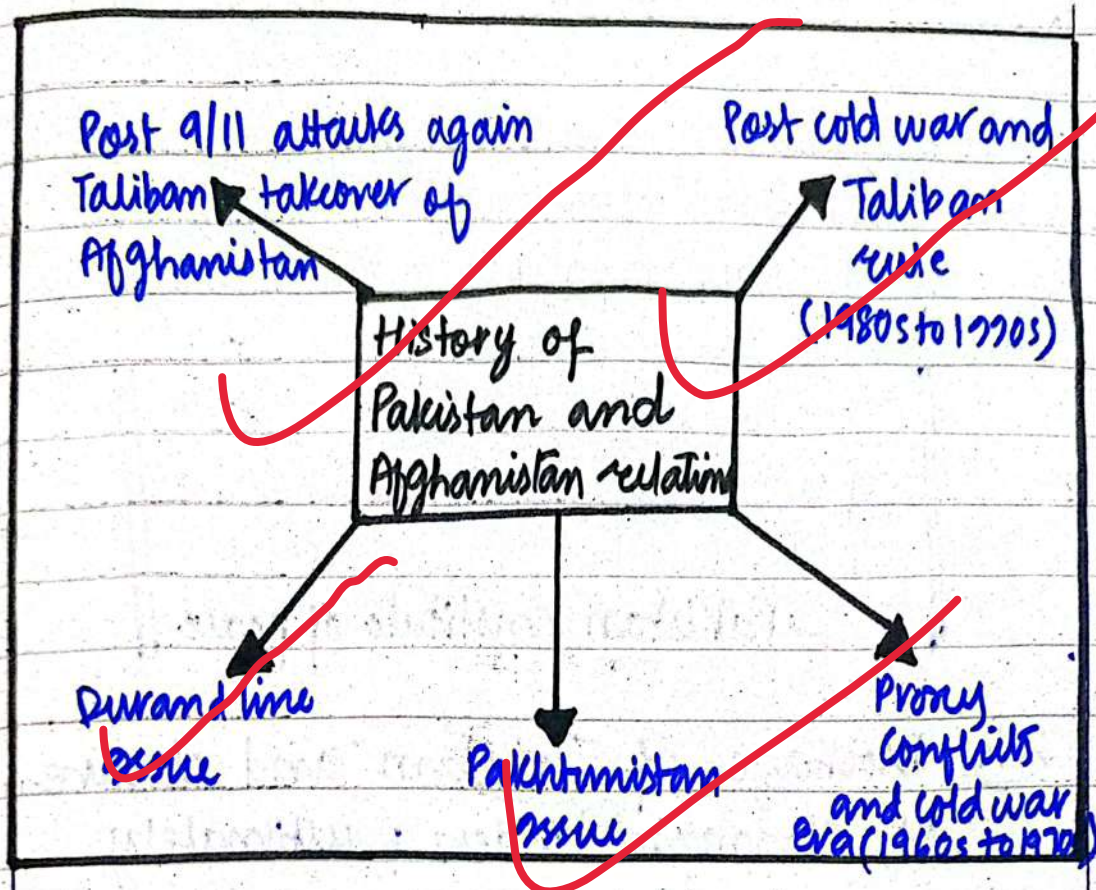 Post 9/11 attacks again
Taliban takeover of
Afghanistan
Post cold war and
Taliban
rule
(1980s to 1990s)
History of
Pakistan and
Afghanistan relation
Durand line
issue
Pakhtunistan
issue
Proxy
Conflicts
and cold war
era (1960s to 1970s)